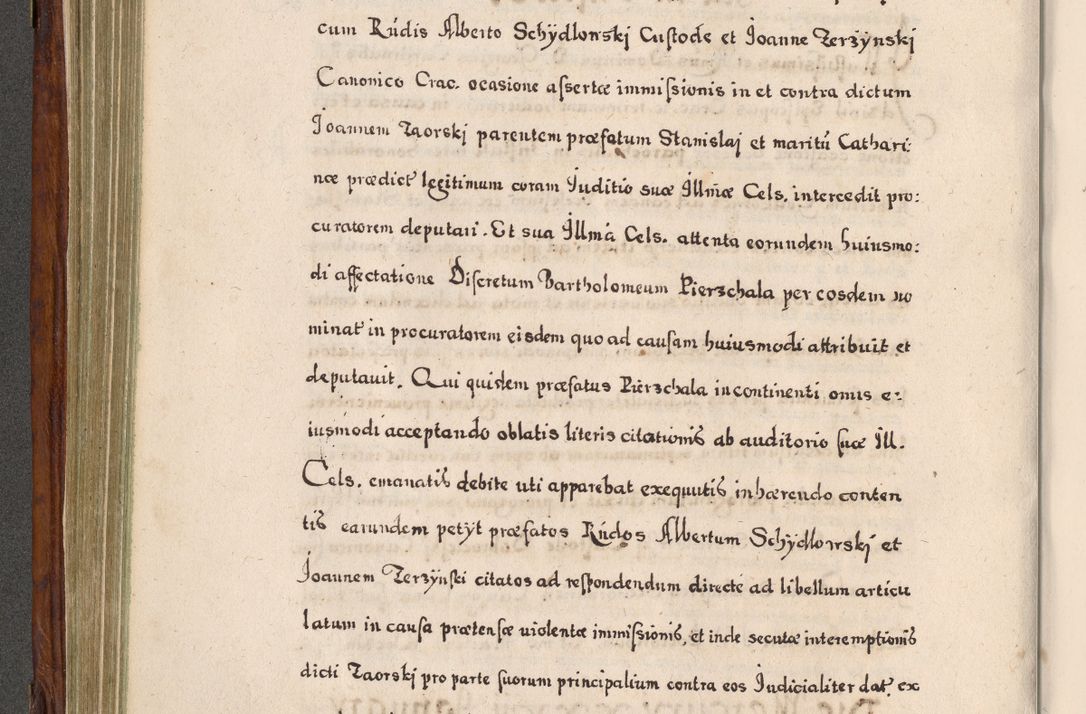 cum Rúdis Alberto Schÿdlowskj Custode et Joanne Zerzÿnskj
Canonico Crac. ocasione assertæ immissionis in et contra dictum
Joannem Zaorskj parentem præfatum Stanislaj et maritú Cathari:
næ prædict legitimum coram Juditio suæ Illmæ Cels. intercedit pro:
curatorem deputari. Et sua Illma Cels. attenta eorundem huiusmo:
di affectatione Discretum Bartholomeum Pierzchala per eosdem no
minat in procuratorem eisdem quo ad causam huiusmodi attribuit et
deputauit. Qui quidem præfatus Pierzchala incontinenti omis e:
iusmodi acceptando oblatis literis citationis ab auditorio suæ Ill.
Cels. emanatis debite uti apparebat exequutis inhærendo conten
tis earundem petÿt præfatos Rúdos Albertum Schÿdlowskj et
Joannem Zerzÿnski citatos ad respondendum directe ad libellum articu
latum in causa prætensæ uiolentæ immissionis, et inde secutæ interemptionis
dicti Zaorskj pro parte suorum principalium contra eos Judicialiter dat. ex